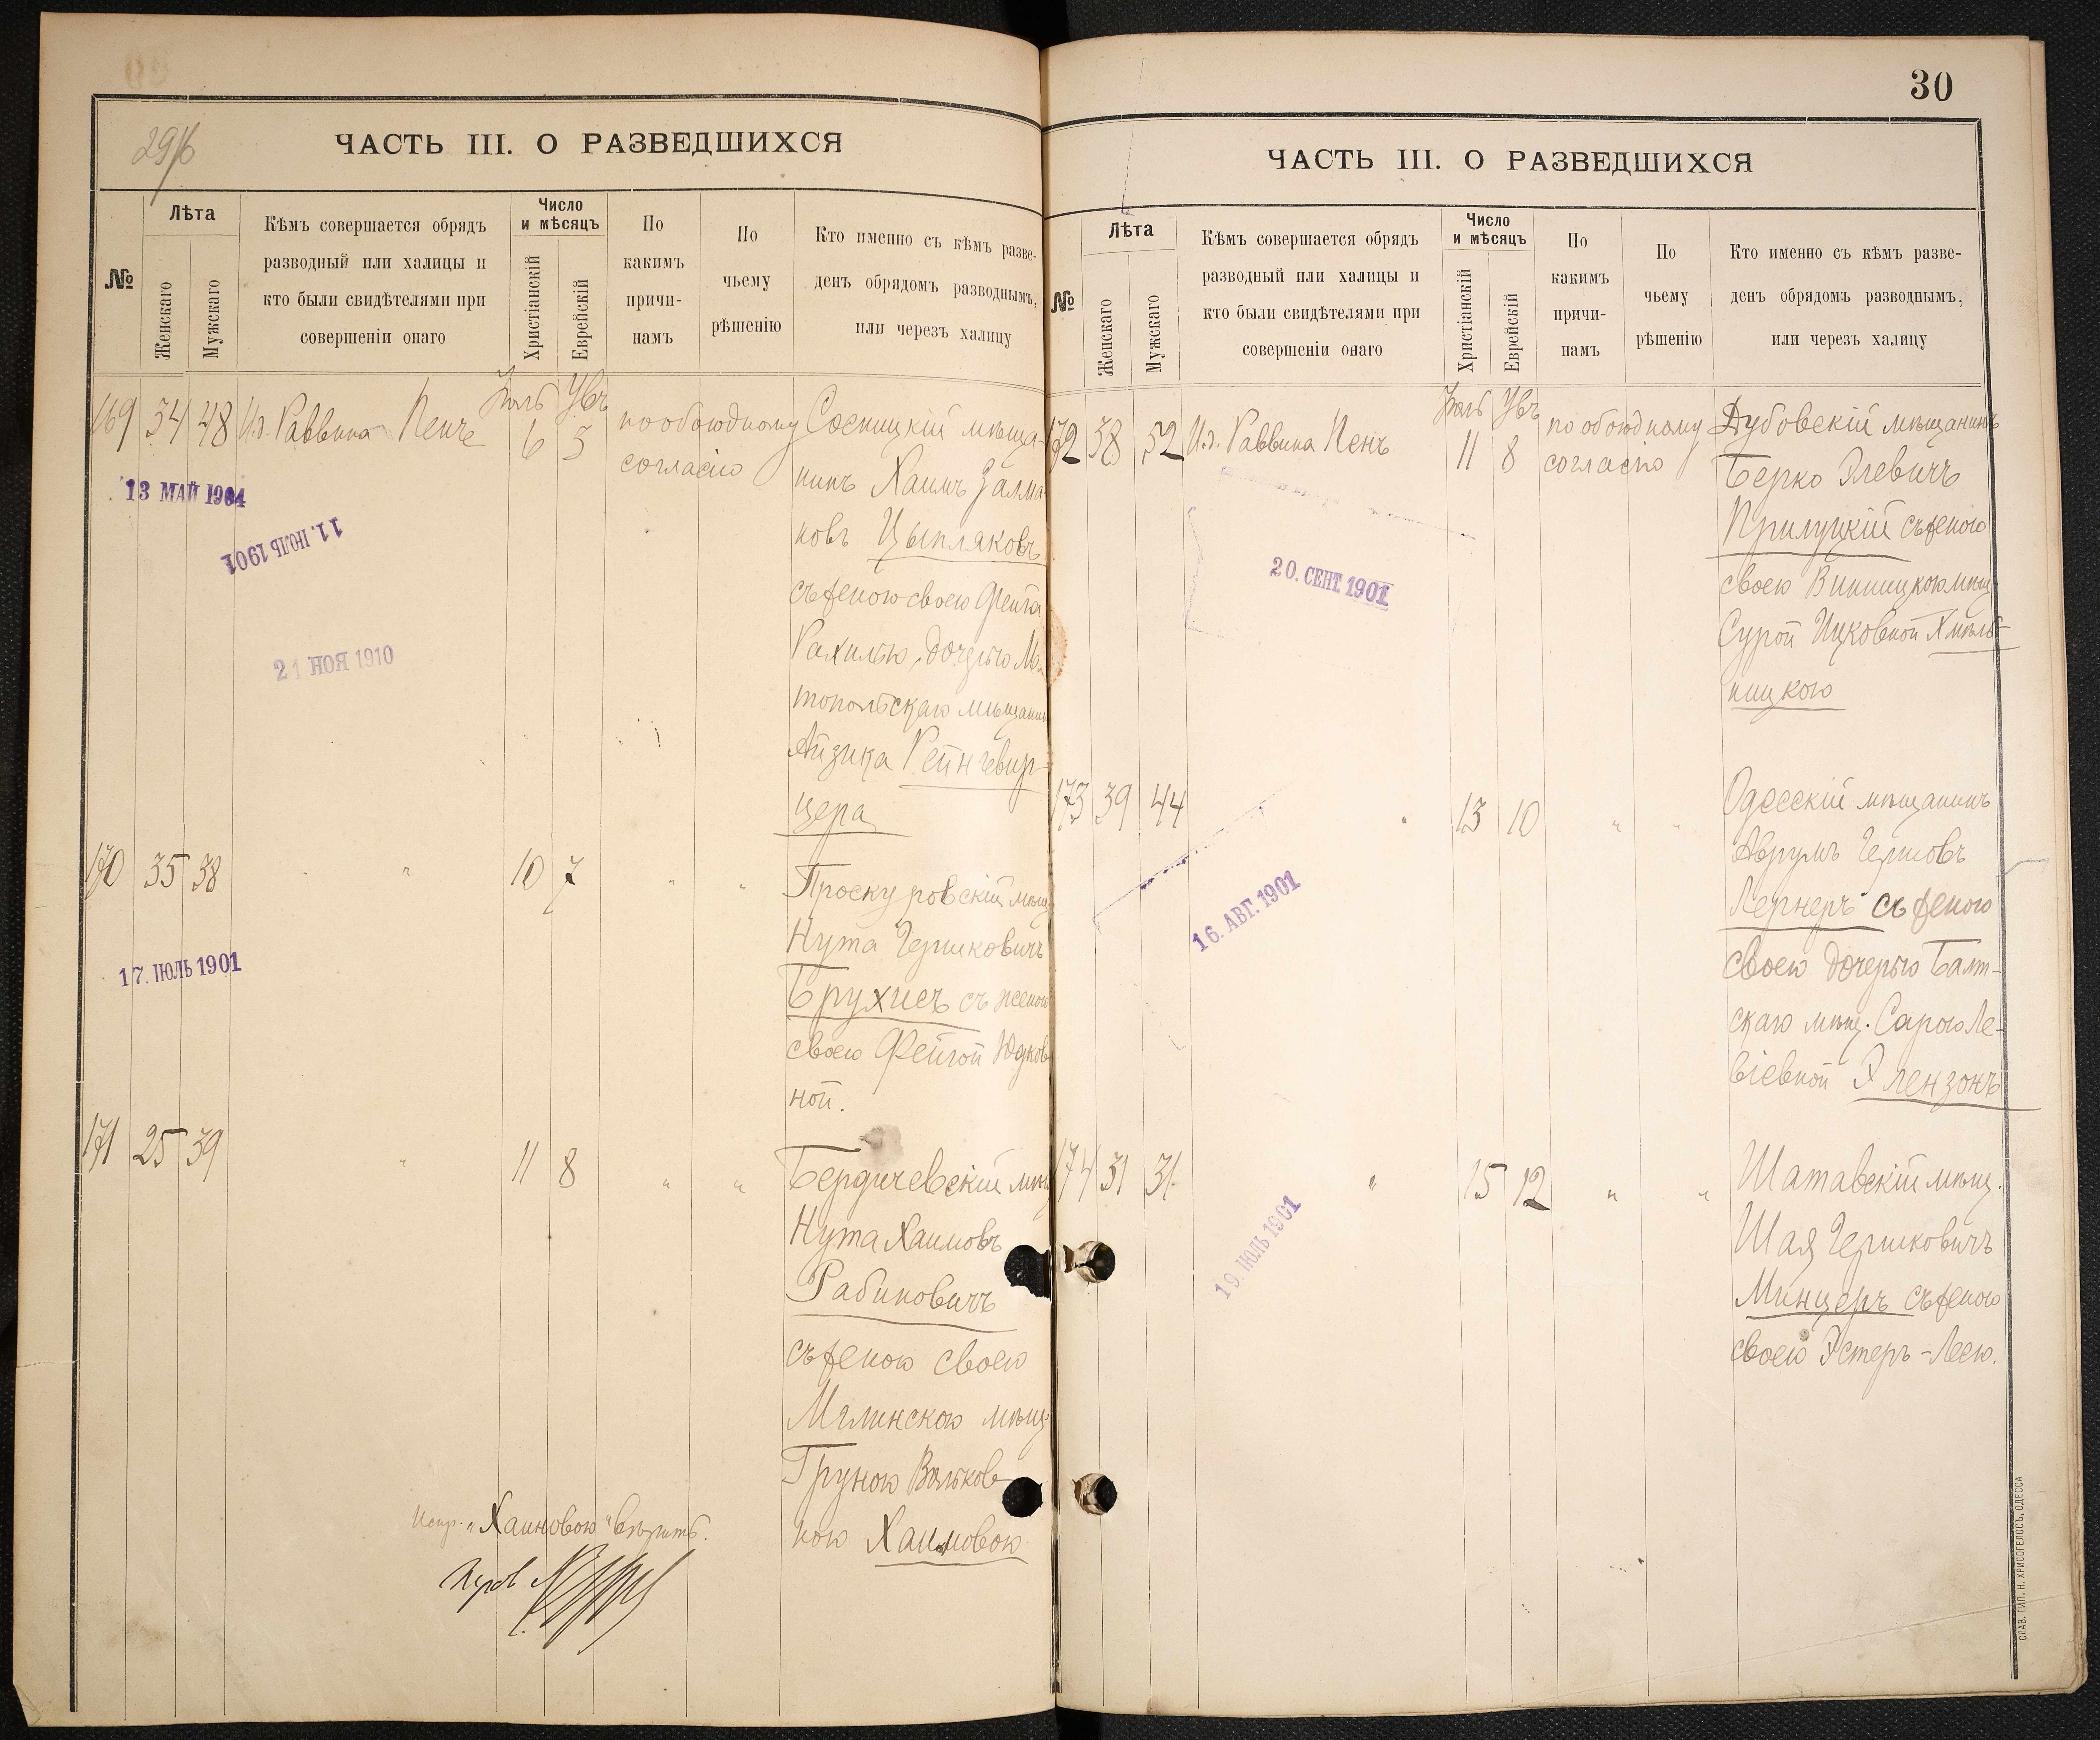 29/б
ЧАСТЬ III. О РАЗВЕДШИХСЯ
№
Лѣта
Женскаго
Мужскаго
Кѣмъ совершается обрядъ
разводный или халицы и
кто были свидѣтелями при
совершеніи онаго
Число
и мѣсяцъ
Христіанскій
Еврейскій
По
какимъ
причи-
намъ
По
чьему
рѣшенію
Кто именно съ кѣмъ разве-
денъ обрядомъ разводнымъ,
или черезъ халицу
169 34 48 И.д. Раввина Пенъ
6 5
по обоюдному
согласію
Сосницкій мѣща-
нинъ Хаимъ Залма-
новъ Цыпляковъ
съ женою своею Фейга
Рахилью, дочерью Ма-
топольскаго мѣщанина
Айзика Рейнгевир-
цера
13 МАЙ 1904
11. ІЮЛЬ 1901
21 НОЯ 1910
170 35 38 " 10 7 " "
Проскуровскій мѣщ.
Нута Гершковичъ
Брухисъ съ женою
своею Фейгой Юдков-
ной.
17. ІЮЛЬ 1901
171 25 39 " 11 8 " "
Бердичевскій мѣщ.
Нута Хаимовъ
Рабиновичъ
съ женою своею
Малинскою мѣщ.
Груною Вольков-
ною Хаимовою
Испр. „Хаимовою" вѣрить.
30
ЧАСТЬ III. О РАЗВЕДШИХСЯ
№
Лѣта
Женскаго
Мужскаго
Кѣмъ совершается обрядъ
разводный или халицы и
кто были свидѣтелями при
совершеніи онаго
Число
и мѣсяцъ
Христіанскій
Еврейскій
По
какимъ
причи-
намъ
По
чьему
рѣшенію
Кто именно съ кѣмъ разве-
денъ обрядомъ разводнымъ,
или черезъ халицу
172 38 52 И.д. Раввина Пенъ
11 8
по обоюдному
согласію
Дубовскій мѣщанинъ
Берко Элевичъ
Прилуцкій съ женою
своею Винницкою мѣщ.
Сурой Ицковной Хмѣль-
ницкою
20. СЕНТ. 1901
173 39 44 " 13 10 " "
Одесскій мѣщанинъ
Абрумъ Гершовъ
Лернеръ съ женою
своею дочерью Балт-
скаго мѣщ. Сарою Ле-
віевной Элензонъ
16. АВГ. 1901
174 31 31 " 15 12 " "
Шатавскій мѣщ.
Шая Гершковичъ
Минцеръ съ женою
своею Эстеръ-Леею.
19. ІЮЛЬ 1901
СЛАВ. ТИП. Н. ХРИСОГЕЛОСЪ, ОДЕССА